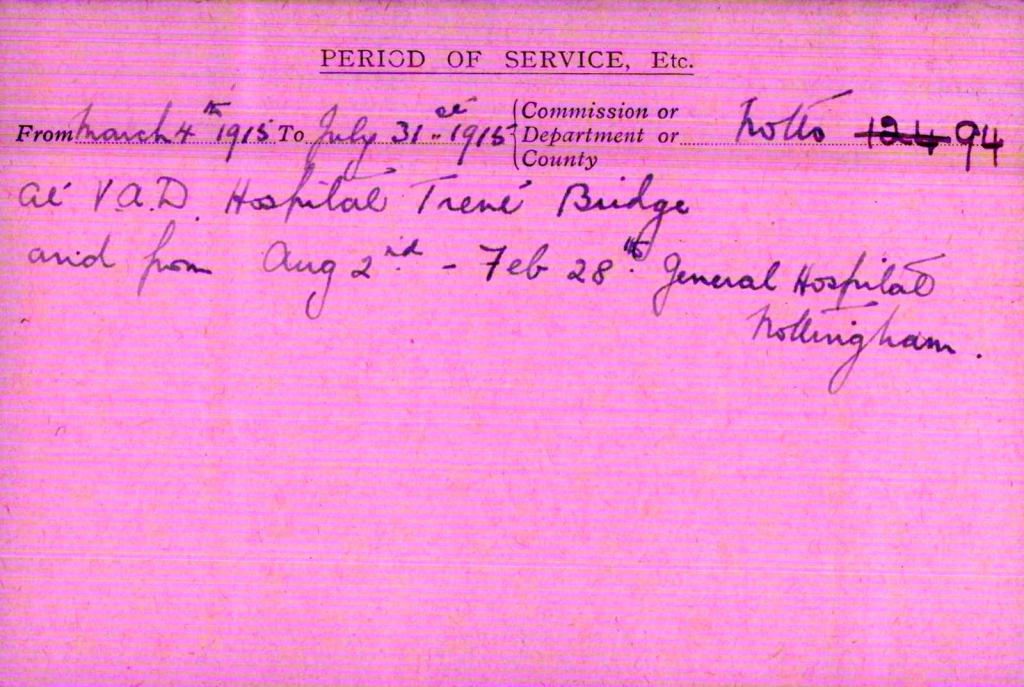 PERIOD OF SERVICE, Etc.
From March 4th 1915 To July 31st 1915 Commission or Department or County Notts 124 94
at V.A.D. Hospital Trent Bridge
and from Aug 2nd - Feb 28th General Hospital
Nottingham.